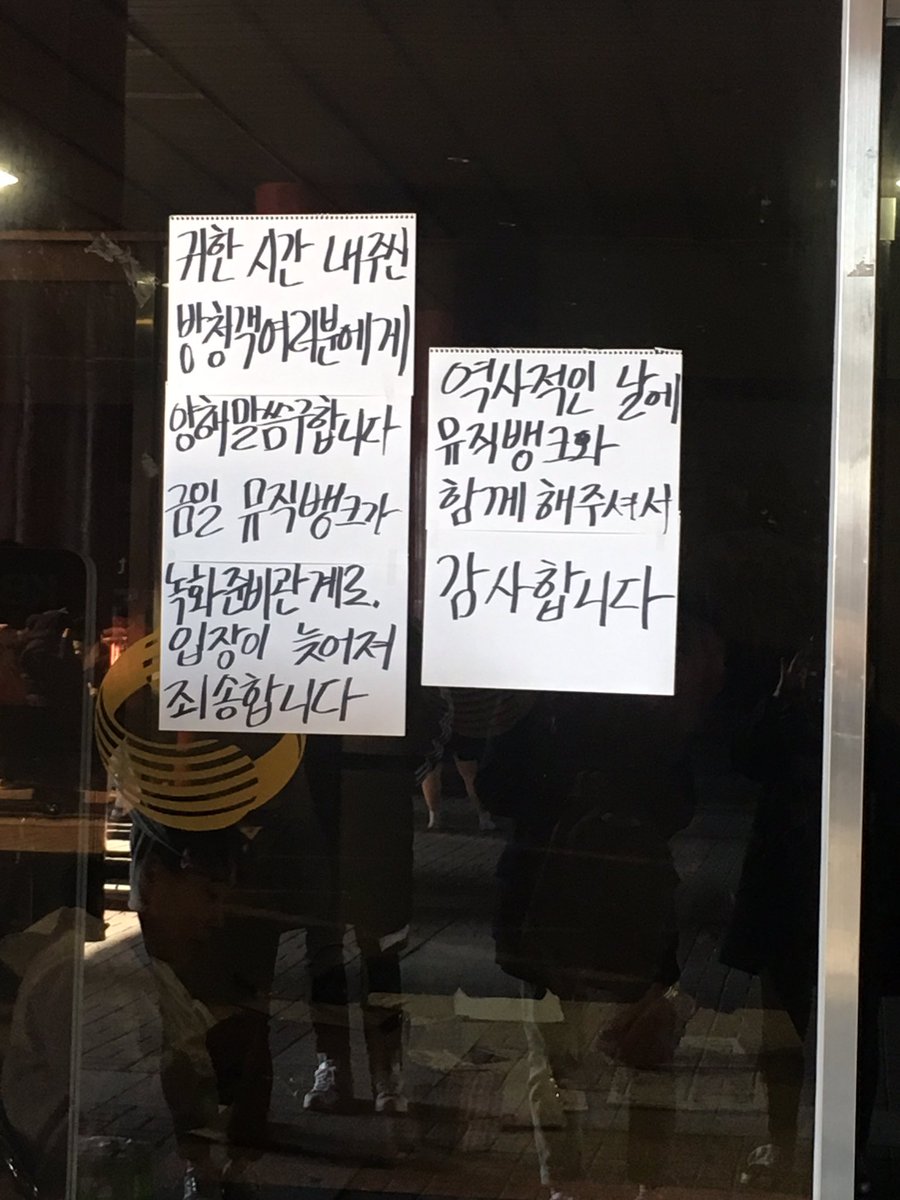 귀한 시간 내주신
방청객여러분에게
양해말씀구합니다
금일 뮤직뱅크가
녹화준비관계로.
입장이 늦어져
죄송합니다
역사적인 날에
뮤직뱅크와
함께 해주셔서
감사합니다